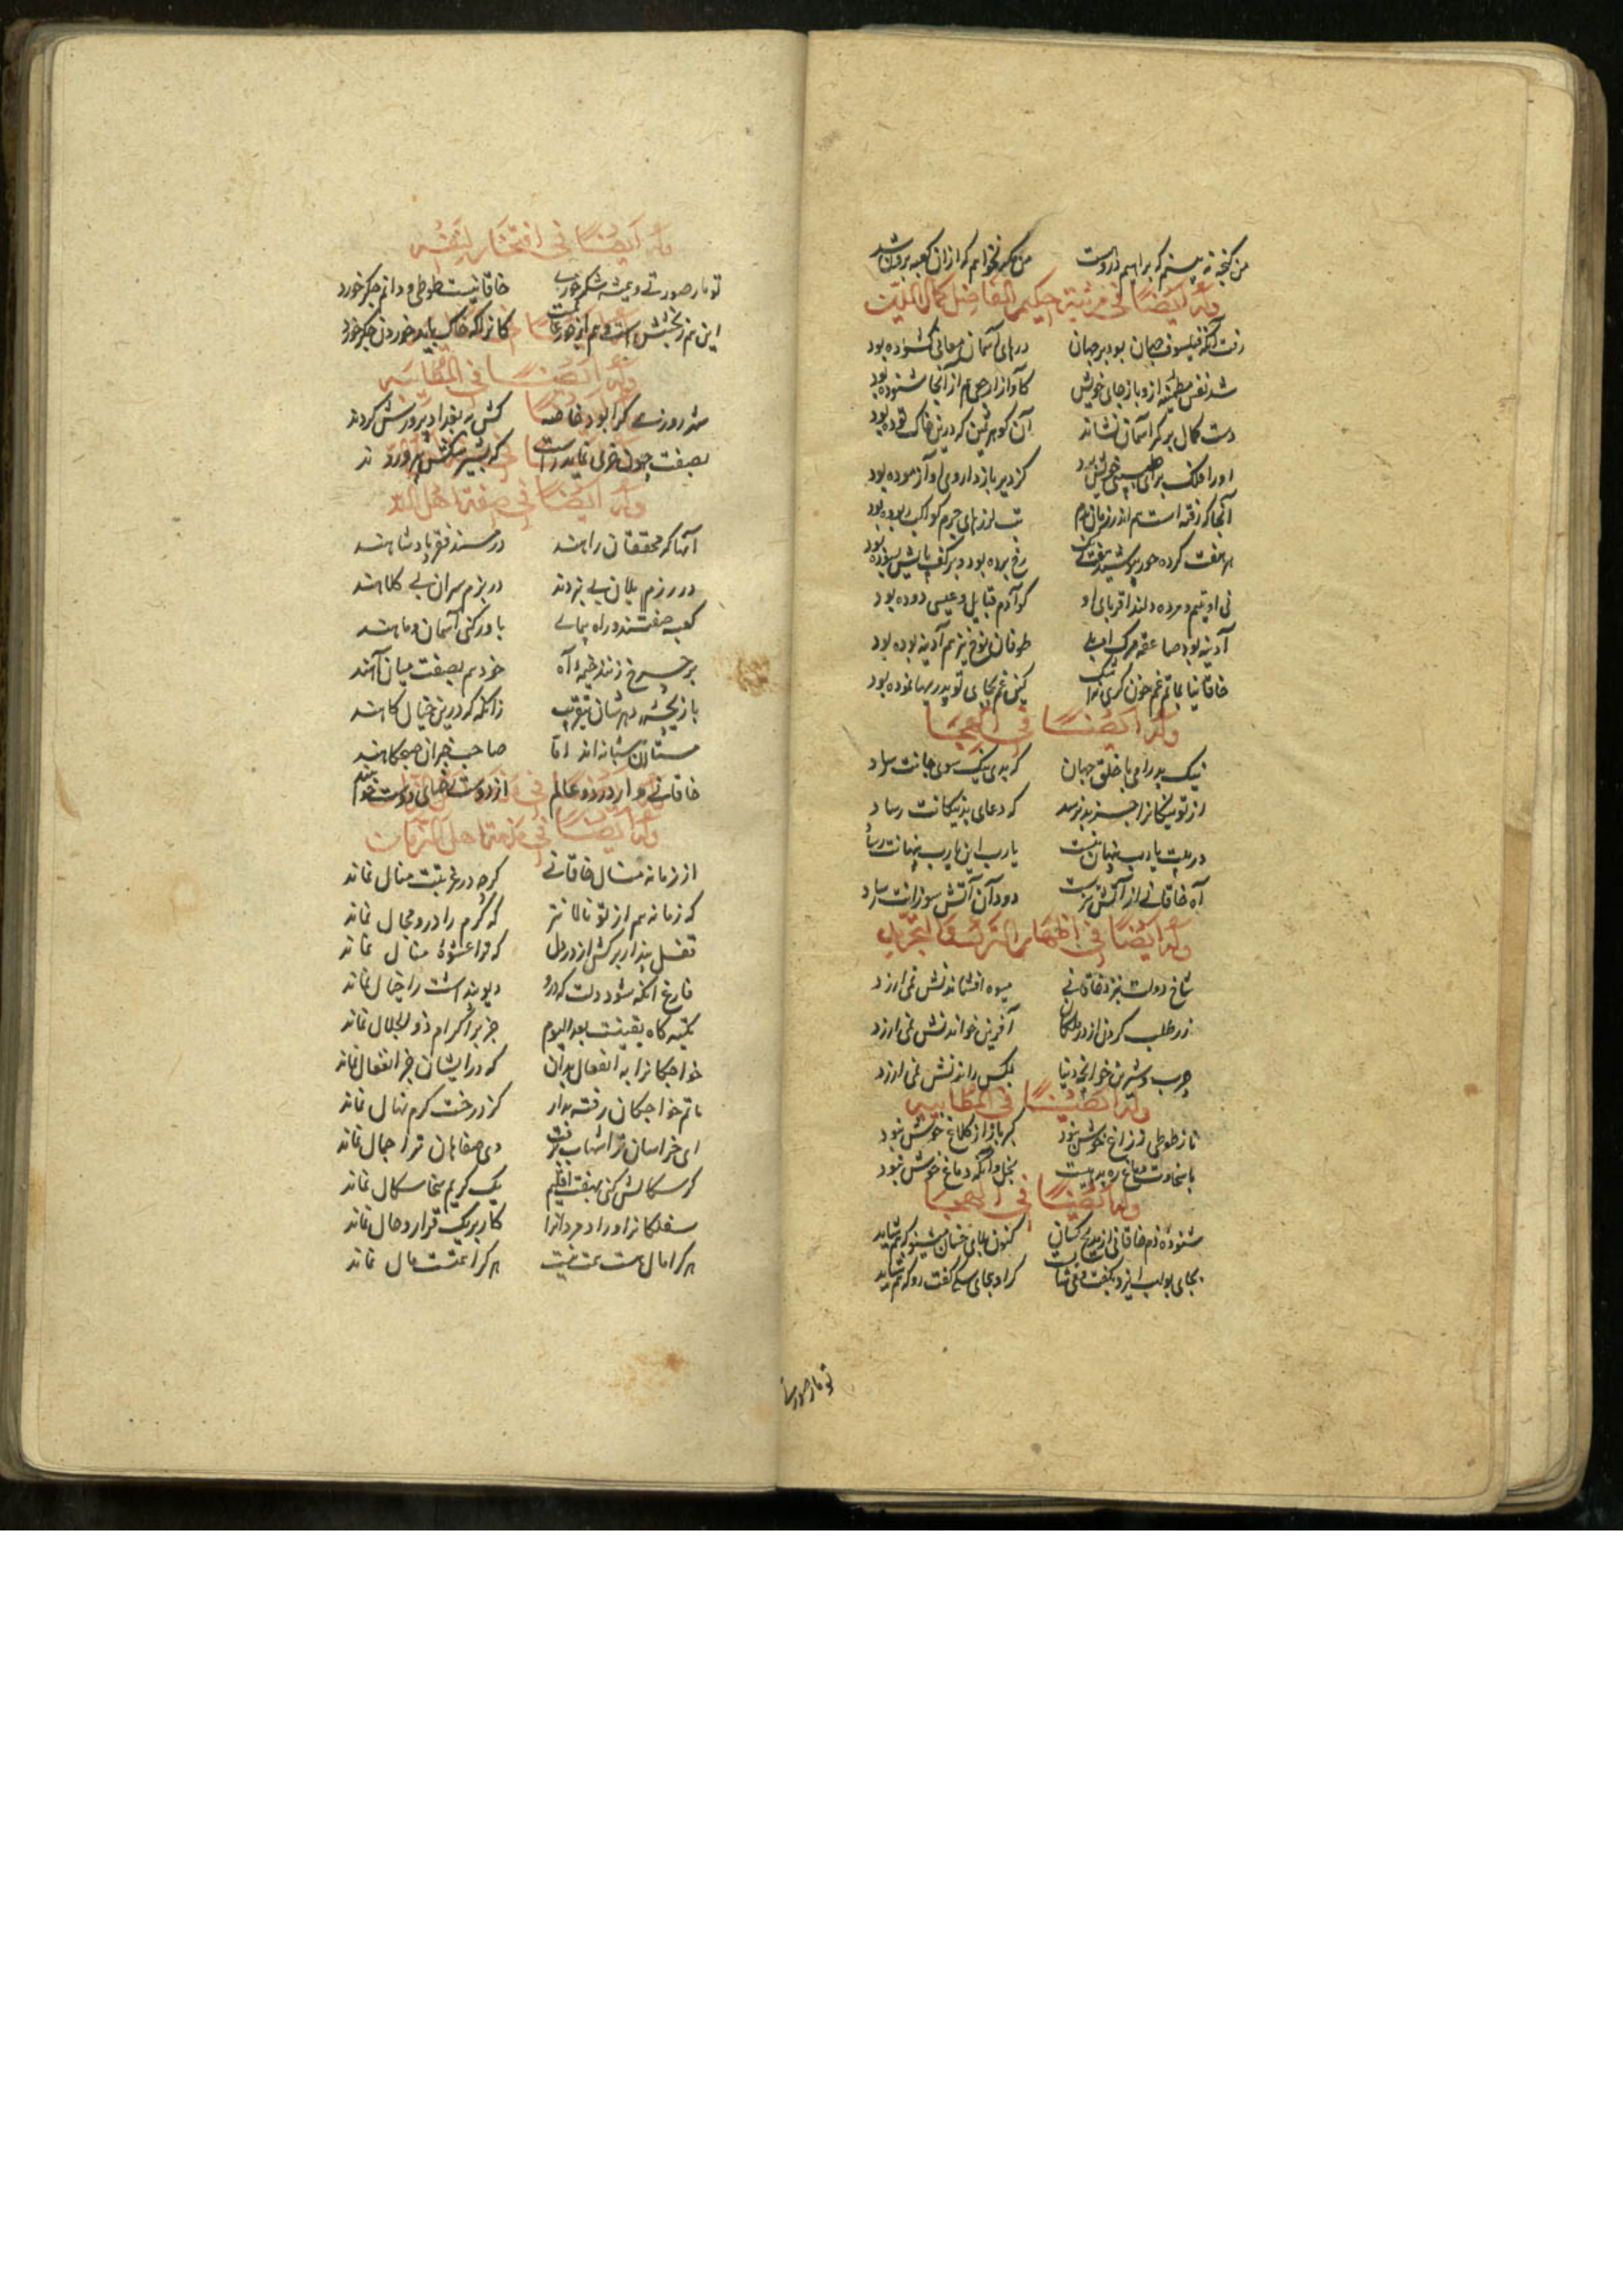 من کنجه نه بینم که براهیم در وست من کعبه نخواهم که ازان کعبه برون شد
وله ایضا فی مرثیة حکیم الفاضل کمال الملة
رفت آنکه فیلسوف جهان بود بر جهان درهای آسمان معانی کشوده بود
شد نفس مطمئنه او باز جای خویش کآواز ارجعی هم از آنجا شنوده بود
دست کمال بر کمر آسمان نشاند آن کوهر ثمین که درین خاک توده بود
اورا فلک برای طبیبی خویش برد کز دیر باز داروی او آزموده بود
آنجا که رفته است هم اندر زمان دم تب لرزهای جرم کواکب ربوده بود
هر هفت کرده حور بهشتی رخ برده بود و بر کف پایش بسوده بود
نی او یتیم و مرده دلند اقربای او کو آدم قبایل و عیسی دوده بود
آدینه بود صاعقه مرک او بلی طوفان نوح نیز هم آدینه بوده بود
خاقانیا بماتم عم خون کری نه اشک کین عم بجای تو پدریها نموده بود
وله ایضا فی الهجا
نیک بد رامی با خلق جهان که بدی نیک سوی جانت رساد
از تو نیکانرا جز بد نرسد که دعای بد نیکانت رساد
در پیت یارب پنهان نیست یارب این یارب پنهانت رساد
آه خاقانی از آتش تیزست دود آن آتش سوزانت رساد
وله ایضا فی اظهار الترک و التجرید
شاخ دولت بنزد خاقانی میوه افشاندنش نمی ارزد
زر طلب کردن از در ملکان آفرین خواندنش نمی ارزد
چرب و شیرین خوانچه دنیا مکس راندنش نمی ارزد
وله ایضا فی المطایبه
ناز طوطی ز زاغ خوش نبود کبر باز از کلاغ خوش نبود
با سخاوت دماغ بد نیست بخل و آنکه دماغ خوش نبود
وله ایضا فی الهجا
شنوده ذم خاقانی از مدیح کسان کنون بلای خسان مشنو که هم شاید
بجای بولهب ایزد بکفت کرا و بجای سکی کفت رو که هم شاید
تو مار صورتی
وله ایضا فی افتخار لنفسه
تو مار صورتی و همیشه شکر خوری خاقانیست طوطی و دایم جکر خورد
این هم ز بخشش است و هم از جور کانرا که خاک باید خوردن جکر خورد
وله ایضا فی المطایبه
شد روزی کرا بود خاصه کش به بغداد پرورش کردند
بصفت چون خری نماید راست که بشیر سکش پرورد ند
وله ایضا فی صفة اهل
آنها که محققان راهند در مسند فقر پادشاهند
در رزم یلان بی نبردند در بزم سران بی کلاهند
کعبه صفتند و راه پیمای باور کنی آسمان و ماهند
بر چرخ زنند خیمه آه خود هم بصفت میان آهند
بازیچه دهرشان نفریبد زانکه که درین خیال کاهند
مستان شبانه اند اما صاحب خبران صبحکاهند
خاقانی وار در دو عالم از دوست رضای دوست خواهند
وله ایضا فی مذمة اهل الزمان
از زمانه منال خاقانی کرچه در غربتت منال نماند
که زمانه هم از تو نالا نتر که کرم را درو مجال نماند
قفل پندار بر کش از در دل که ترا عشوهٔ منال نماند
فارغ انکه شود دلت که درو دیو پنداشت را خیال نماند
تکیه کاه یقینت بعد الیوم جز بر اکرام ذو الجلال نماند
خواجکانرا به انفعال مدان که در ایشان جز انفعال نماند
ماتم خواجکان رفته بدار کز درخت کرم نهال نماند
ای خراسان ترا شهاب برفت وی صفاهان ترا جمال نماند
کر سکالش کنی بهفت اقلیم یک کریم سخا سکال نماند
سفلکانرا و راد مردانرا کار بر یک قرار و حال نماند
هر کرا مال هست همت نیست هر کرا همتست مال نماند